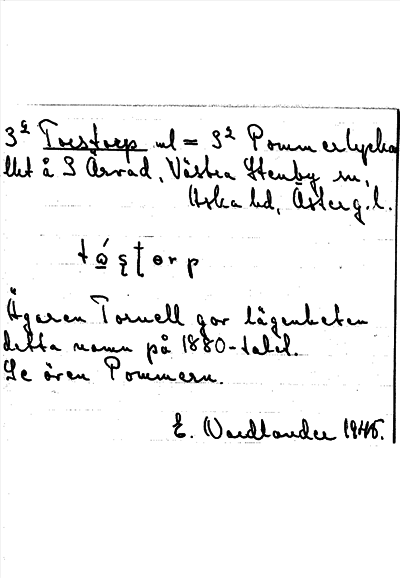 3e Torstorp ul = 3e Pommerlycka
lht å S Arvad, Västra Stenby sn,
Aska hd, Österg.l.
tóstorp
Ägaren Tornell gav lägenheten
detta namn på 1880-talet.
Se även Pommern.
E. Nordlander 1945.